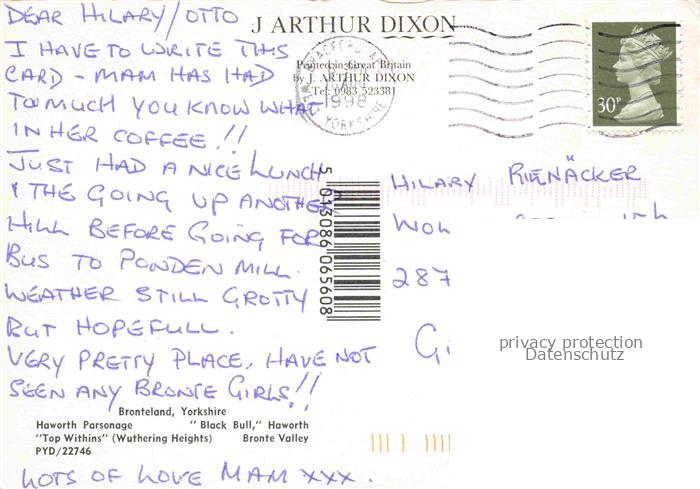 DEAR HILARY/OTTO
I HAVE TO WRITE THIS
CARD - MAM HAS HAD
TO MUCH YOU KNOW WHAT
IN HER COFFEE!!
JUST HAD A NICE LUNCH
& THE GOING UP ANOTHER
HILL BEFORE GOING FOR
BUS TO PONDEN MILL.
WEATHER STILL GROTTY
BUT HOPEFULL.
VERY PRETTY PLACE, HAVE NOT
SEEN ANY BRONTE GIRLS!!
Bronteland, Yorkshire
Haworth Parsonage "Black Bull," Haworth
"Top Withins" (Wuthering Heights) Bronte Valley
PYD/22746
LOTS OF LOVE MAM XXX.
J ARTHUR DIXON
Printed in Great Britain
by J. ARTHUR DIXON
Tel: 0983 523381
1998
YORKSHIRE
30P
5 013086 065608
HILARY RIENÄCKER
WOL
287
G
privacy protection
Datenschutz